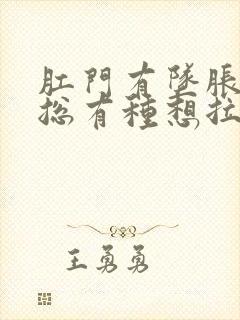 肛門有墜脹
總有種想拉
王勇勇